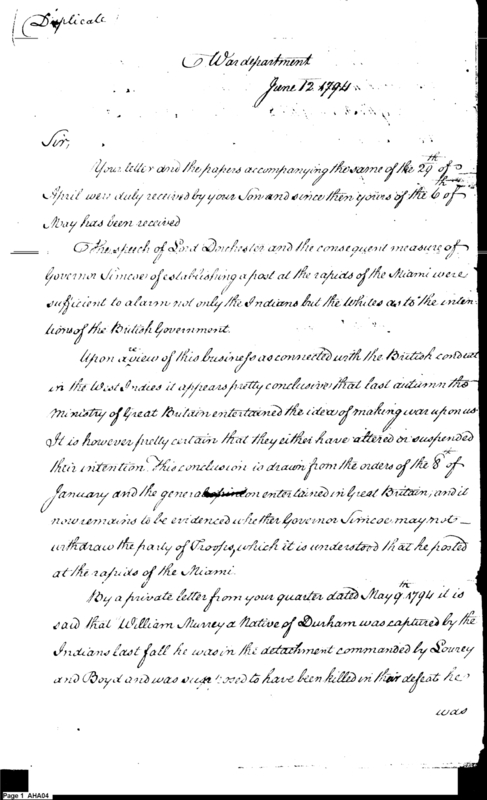 Duplicate
War department
June 12 1794
Sir,
Your letter and the papers accompanying the same of the 29th of
April were duly received by your Son and since then yours of the 6th of
May has been received
The speech of Lord Dorchester and the consequent measure of
Governor Simcoe of establishing a post at the rapids of the Miami were
sufficient to alarm not only the Indians but the Whites as to the inten-
tions of the British Government.
Upon a review of this business as connected with the British conduct
in the West Indies it appears pretty conclusive that last autumn the
Ministry of Great Britain entertained the idea of making war upon us
It is however pretty certain that they either have altered or suspended
their intention. This conclusion is drawn from the orders of the 8th of
January and the general opinion entertained in Great Britain, and it
now remains to be evidenced whether Governor Simcoe may not
withdraw the party of Troops, which it is understood that he posted
at the rapids of the Miami.
By a private letter from your quarter dated May 9th 1794 it is
said that William Murrey a Native of Durham was captured by the
Indians last fall he was in the detachment commanded by Lowrey
and Boyd and was supposed to have been killed in their defeat he
was
Page 1 AHA04